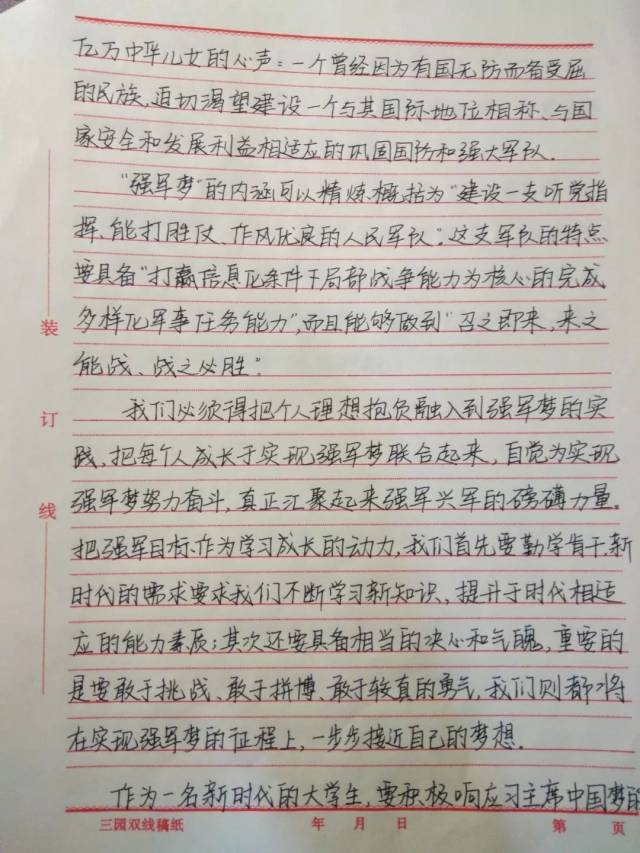 亿万中华儿女的心声:一个曾经因为有国无防而备受屈
的民族,迫切渴望建设一个与其国际地位相称、与国
家安全和发展利益相适应的巩固国防和强大军队.
"强军梦"的内涵可以精炼概括为"建设一支听党指
挥、能打胜仗、作风优良的人民军队"。这支军队的特点
要具备"打赢信息化条件下局部战争能力为核心的完成
多样化军事任务能力",而且能够做到"召之即来,来之
能战、战之必胜"。
装
我们必须得把个人理想抱负融入到强军梦的实
订
践,把每个人成长于实现强军梦联合起来,自觉为实现
强军梦努力奋斗,真正汇聚起来强军兴军的磅礴力量。
线
把强军目标作为学习成长的动力,我们首先要勤学肯干,新
时代的需求要求我们不断学习新知识、提升于时代相适
应的能力素质;其次还要具备相当的决心和气魄,重要的
是要敢于挑战、敢于拼博、敢于较真的勇气,我们则都将
在实现强军梦的征程上,一步步接近自己的梦想.
作为一名新时代的大学生,要积极响应习主席中国梦的
三园双线稿纸 年 月 日 第 页